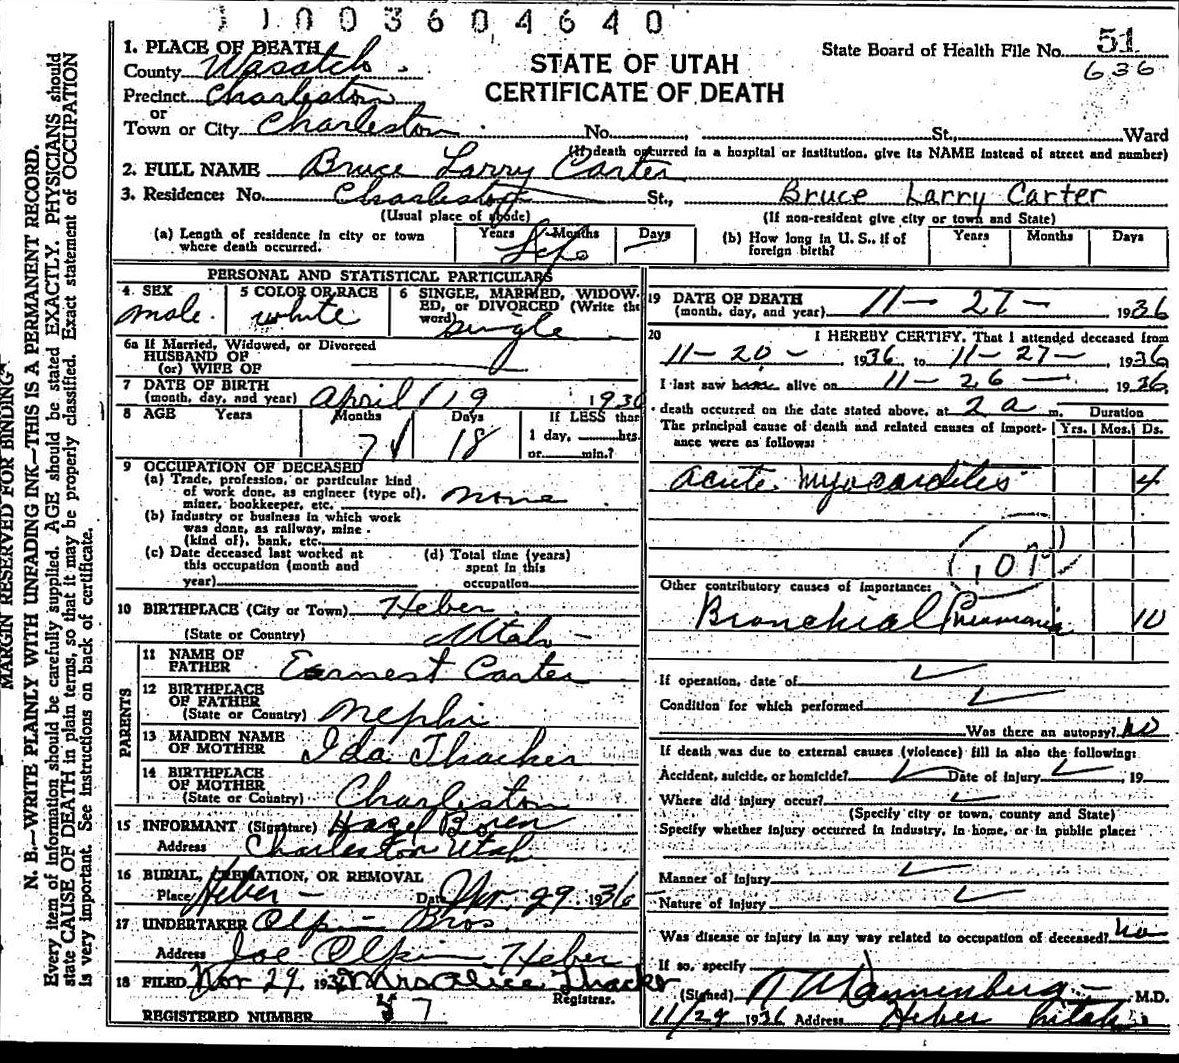 11003604640
1. PLACE OF DEATH
County Wasatch
Precinct Charleston
or
Town or City Charleston No. St., Ward
STATE OF UTAH
CERTIFICATE OF DEATH
State Board of Health File No. 51
636
(If death occurred in a hospital or institution, give its NAME instead of street and number)
2. FULL NAME Bruce Larry Carter
3. Residence: No. Charleston St., Bruce Larry Carter
(Usual place of abode) (If non-resident give city or town and State)
(a) Length of residence in city or town where death occurred. Years Months Days Life
(b) How long in U. S., if of foreign birth? Years Months Days
PERSONAL AND STATISTICAL PARTICULARS
4. SEX male.
5 COLOR OR RACE white
6 SINGLE, MARRIED, WIDOWED, or DIVORCED (Write the word) single
6a If Married, Widowed, or Divorced
HUSBAND OF
(or) WIFE OF
7 DATE OF BIRTH
(month, day, and year) April 19 1936
8 AGE Years Months Days If LESS than
7 18 1 day, hrs.
or min.?
9 OCCUPATION OF DECEASED
(a) Trade, profession, or particular kind
of work done, as engineer (type of),
miner, bookkeeper, etc. none
(b) Industry or business in which work
was done, as railway, mine
(kind of), bank, etc.
(c) Date deceased last worked at
this occupation (month and
year)
(d) Total time (years)
spent in this
occupation
10 BIRTHPLACE (City or Town) Heber
(State or Country) Utah
PARENTS
11 NAME OF
FATHER Earnest Carter
12 BIRTHPLACE
OF FATHER
(State or Country) Nephi
13 MAIDEN NAME
OF MOTHER Ida Thacker
14 BIRTHPLACE
OF MOTHER
(State or Country) Charleston
15 INFORMANT (Signature) Hazel Boren
Address Charleston Utah
16 BURIAL, CREMATION, OR REMOVAL
Place Heber Date Nov. 29. 1936
17 UNDERTAKER Olpin Bros.
Address Joe Olpin Heber
18 FILED Nov 29. 193 Mrs Alice Thacker
Registrar.
REGISTERED NUMBER 7
19 DATE OF DEATH
(month, day, and year) 11-27- 1936
20 I HEREBY CERTIFY, That I attended deceased from
11-20- 1936, to 11-27- 1936
I last saw alive on 11-26- 1936,
death occurred on the date stated above, at 2 a m. Duration
The principal cause of death and related causes of importance were as follows: Yrs. Mos. Ds.
Acute Myocarditis 4
107
Other contributory causes of importance:
Bronchial Pneumonia 10
If operation, date of
Condition for which performed
Was there an autopsy? no
If death was due to external causes (violence) fill in also the following:
Accident, suicide, or homicide? Date of injury , 19
Where did injury occur?
(Specify city or town, county and State)
Specify whether injury occurred in industry, in home, or in public place:
Manner of injury
Nature of injury
Was disease or injury in any way related to occupation of deceased? no
If so, specify
(Signed) Dannenberg M.D.
11/29 1936 Address Heber Utah
MARGIN RESERVED FOR BINDING
N. B.—WRITE PLAINLY WITH UNFADING INK—THIS IS A PERMANENT RECORD.
Every item of information should be carefully supplied. AGE should be stated EXACTLY. PHYSICIANS should
state CAUSE OF DEATH in plain terms, so that it may be properly classified. Exact statement of OCCUPATION
is very important. See instructions on back of certificate.